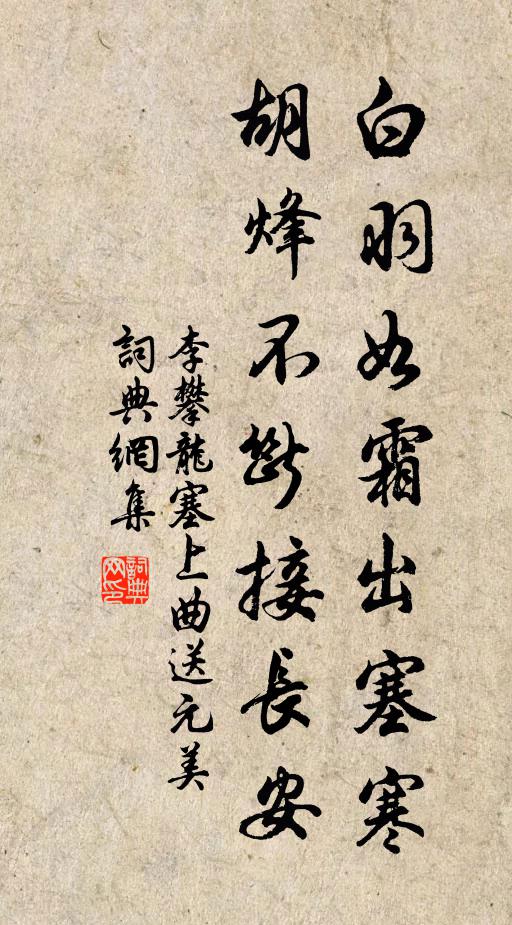 白羽如霜出塞寒
胡烽不斷接長安
李攀龍塞上曲送元美
詞典網集
詞典网印